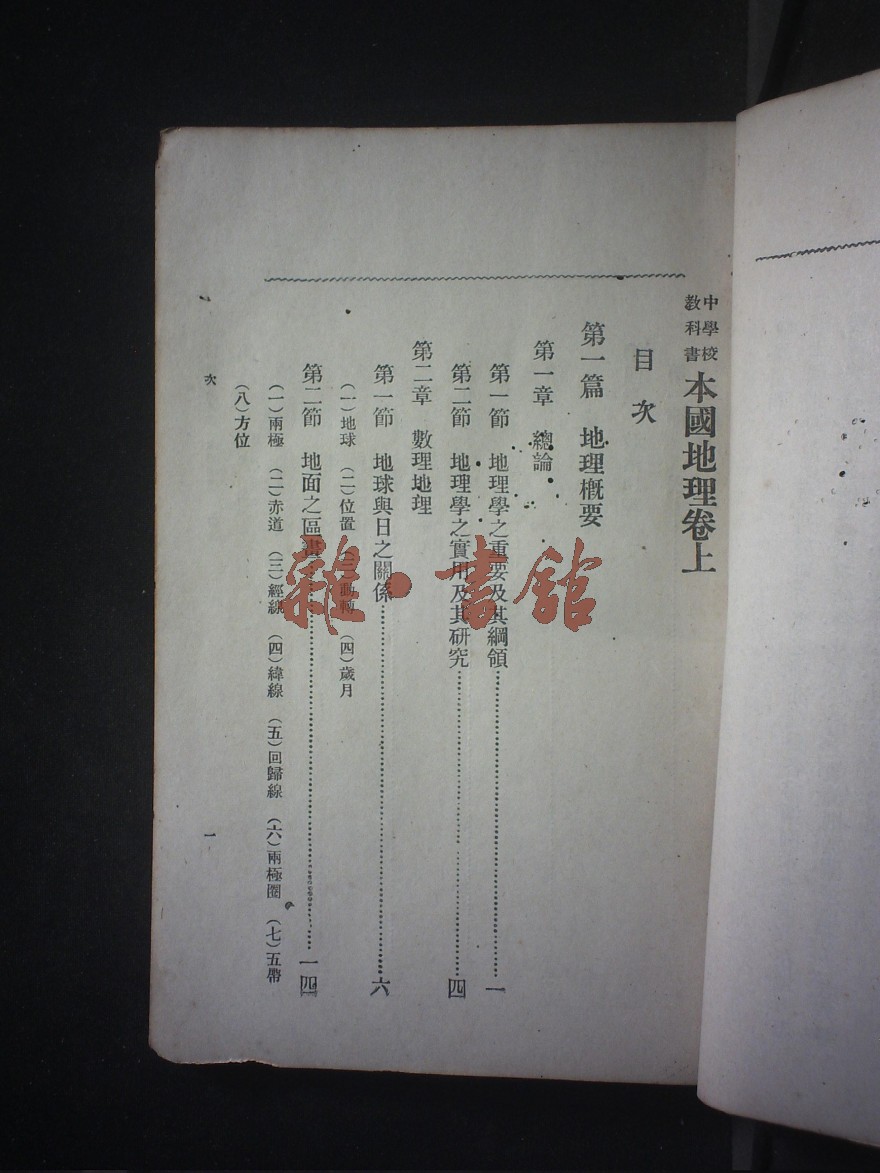 中學校教科書 本國地理卷上
目次
第一篇 地理概要
第一章 總論
第一節 地理學之重要及其綱領 一
第二節 地理學之實用及其研究 四
第二章 數理地理
第一節 地球與日之關係 六
(一)地球 (二)位置 (三)動轉 (四)歲月
第二節 地面之區畫 一四
(一)兩極 (二)赤道 (三)經線 (四)緯線 (五)回歸線 (六)兩極圈 (七)五帶
(八)方位
次 一
雜·書館